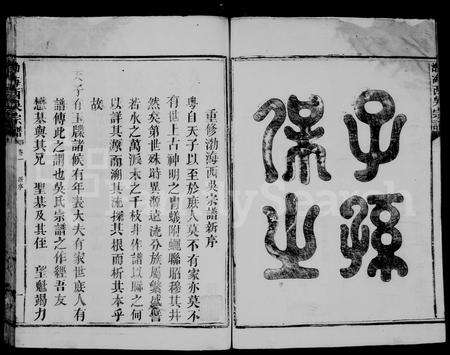 子孫
保之
重修渤海西吳宗譜新序
粵自天子以至於庶人莫不有家亦莫不
有世上古神明之冑蟻附蟬聯昭穆其井
然矣第世殊時異源遠流分族屬繁盛譬
若水之萬派木之千枝非作譜以聯之何
以詳其源而溯其流探其根而析其本乎
故
天子有玉牒諸侯有年表大夫有家世庶人有
譜傳此之謂也吳氏宗譜之作經吾友
懋基與其兄 聖基及其侄 望魁竭力
海西吳宗譜
卷一